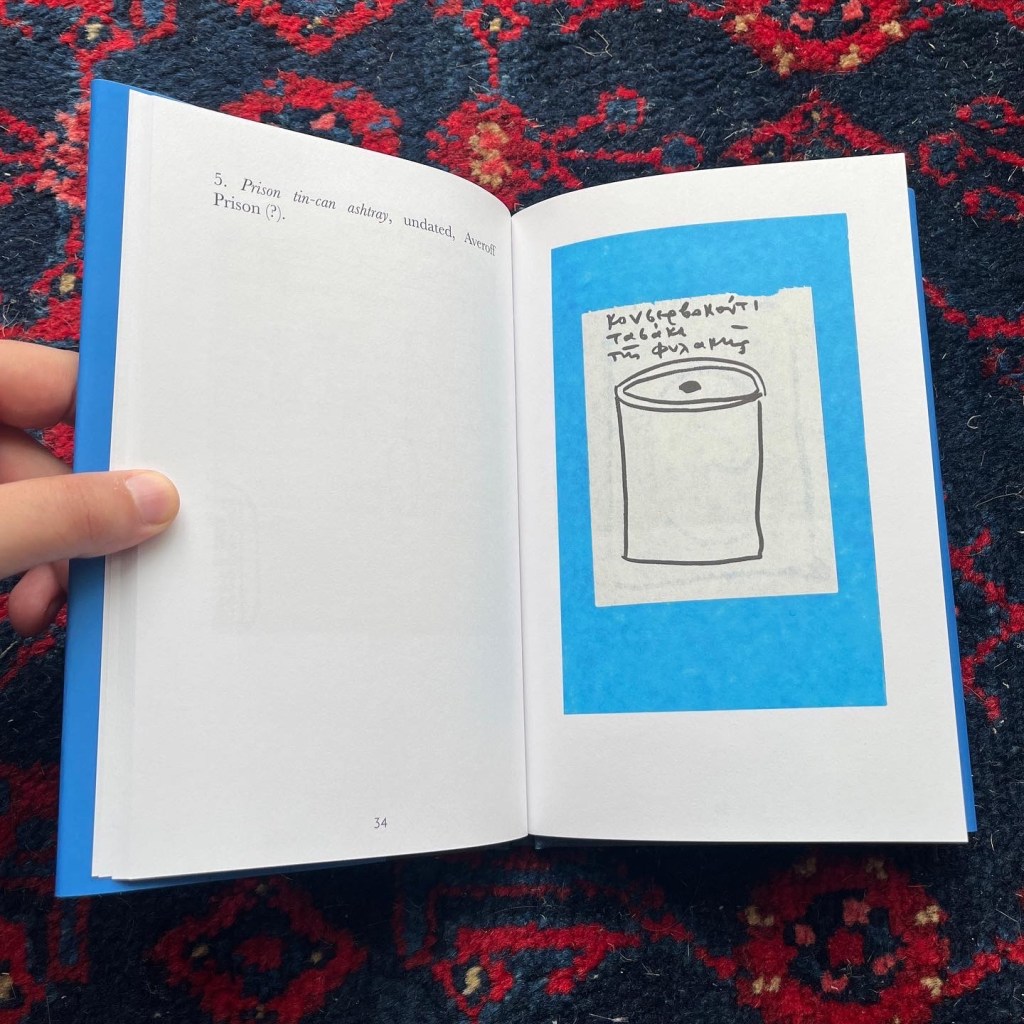 5. Prison tin-can ashtray, undated, Averoff
Prison (?).
34
κονσερβοκούτι
τασάκι
τῆς φυλακῆς